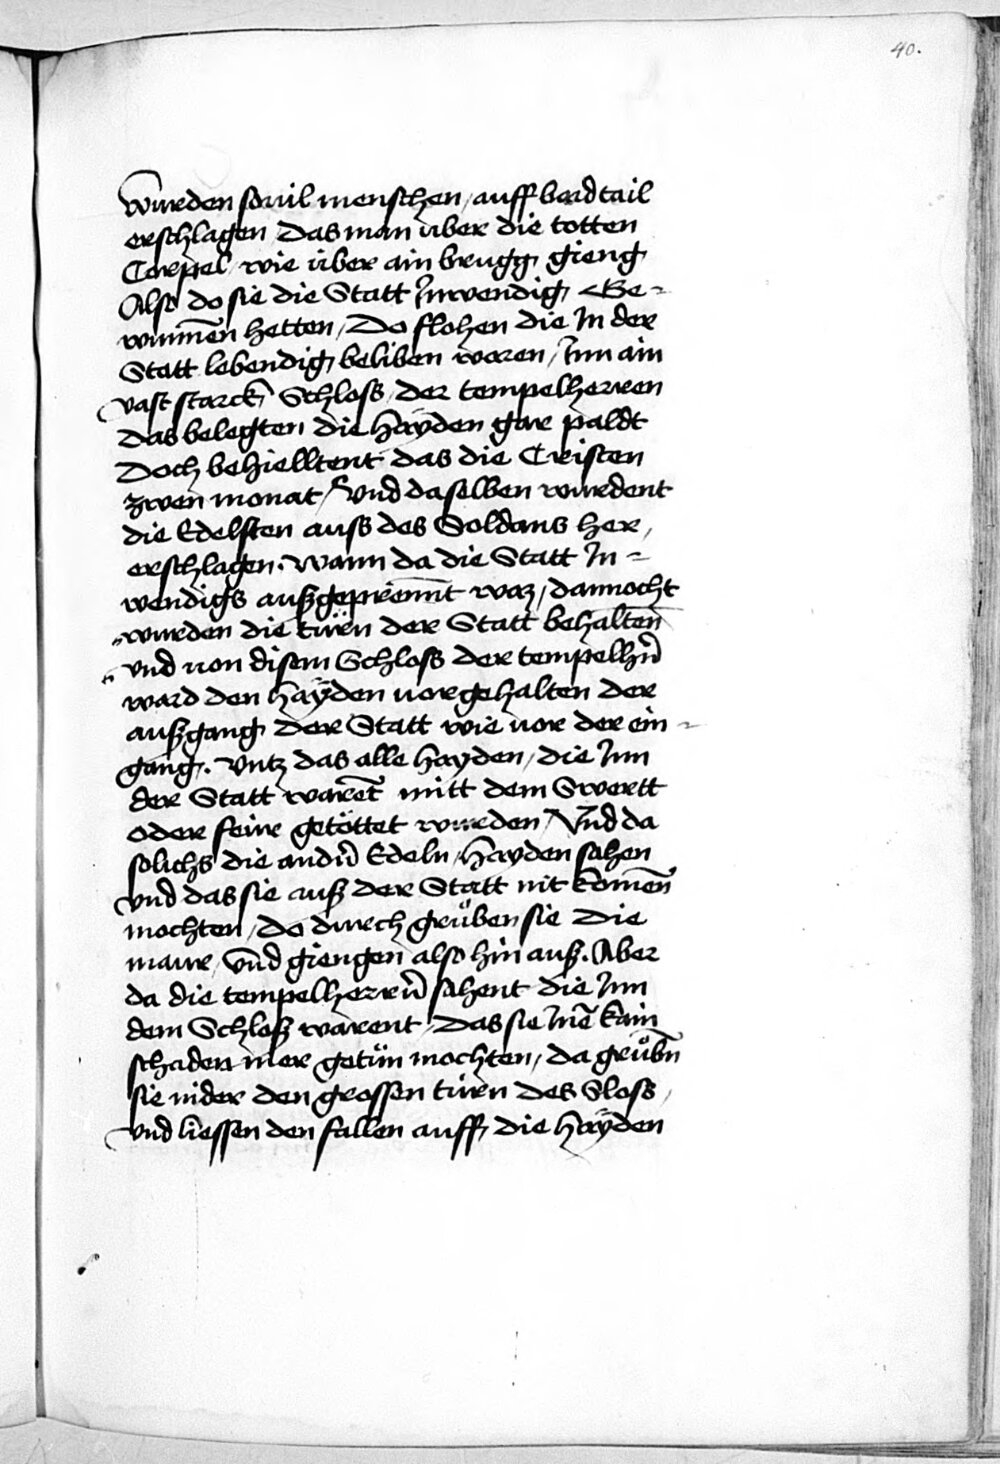 40.
wurden souil menschen / auff baid tail
erschlagen / Das man über die totten
Corpel / wie über ain brugg gieng
Also do sie die Statt Inwendig Ge=
wunnen hetten / Do flohen die In der
Statt lebendig beliben waren / Inn ain
vast starck Schloss / der tempelherren
Das belegten die Hayden gar paldt
Doch behielltent das die Cristen
zwen monat / Vnd daselben wurdent
die Edelsten auss des Soldans her /
erschlagen. Wann da die Statt In=
wendigs außgeprennt waz / dannocht
wurden die türn der Statt behalten
vnd von disem Schloss der tempelhrn̄
ward den Haÿden vorgehalten der
außgang der Statt wie vor der ein=
gang. Vntz das alle hayden / die Inn
der Statt warent mitt dem Swertt
oder feür getöttet wurden / Vnd da
solichs die andrn̄ Edeln / Hayden sahen
vnd das sie auß der Statt nit komen̄
mochten / Do durch grůben sie die
maur / vnd giengen also hin auß. Aber
da die tempelherrn̄ sahent die Inn
dem Schloß warent / Das sie Inē kain
schaden mer getün mochten / da grůbn̄
sie nider den grossen türn des Sloss /
vnd liessen den fallen auff die Haÿden